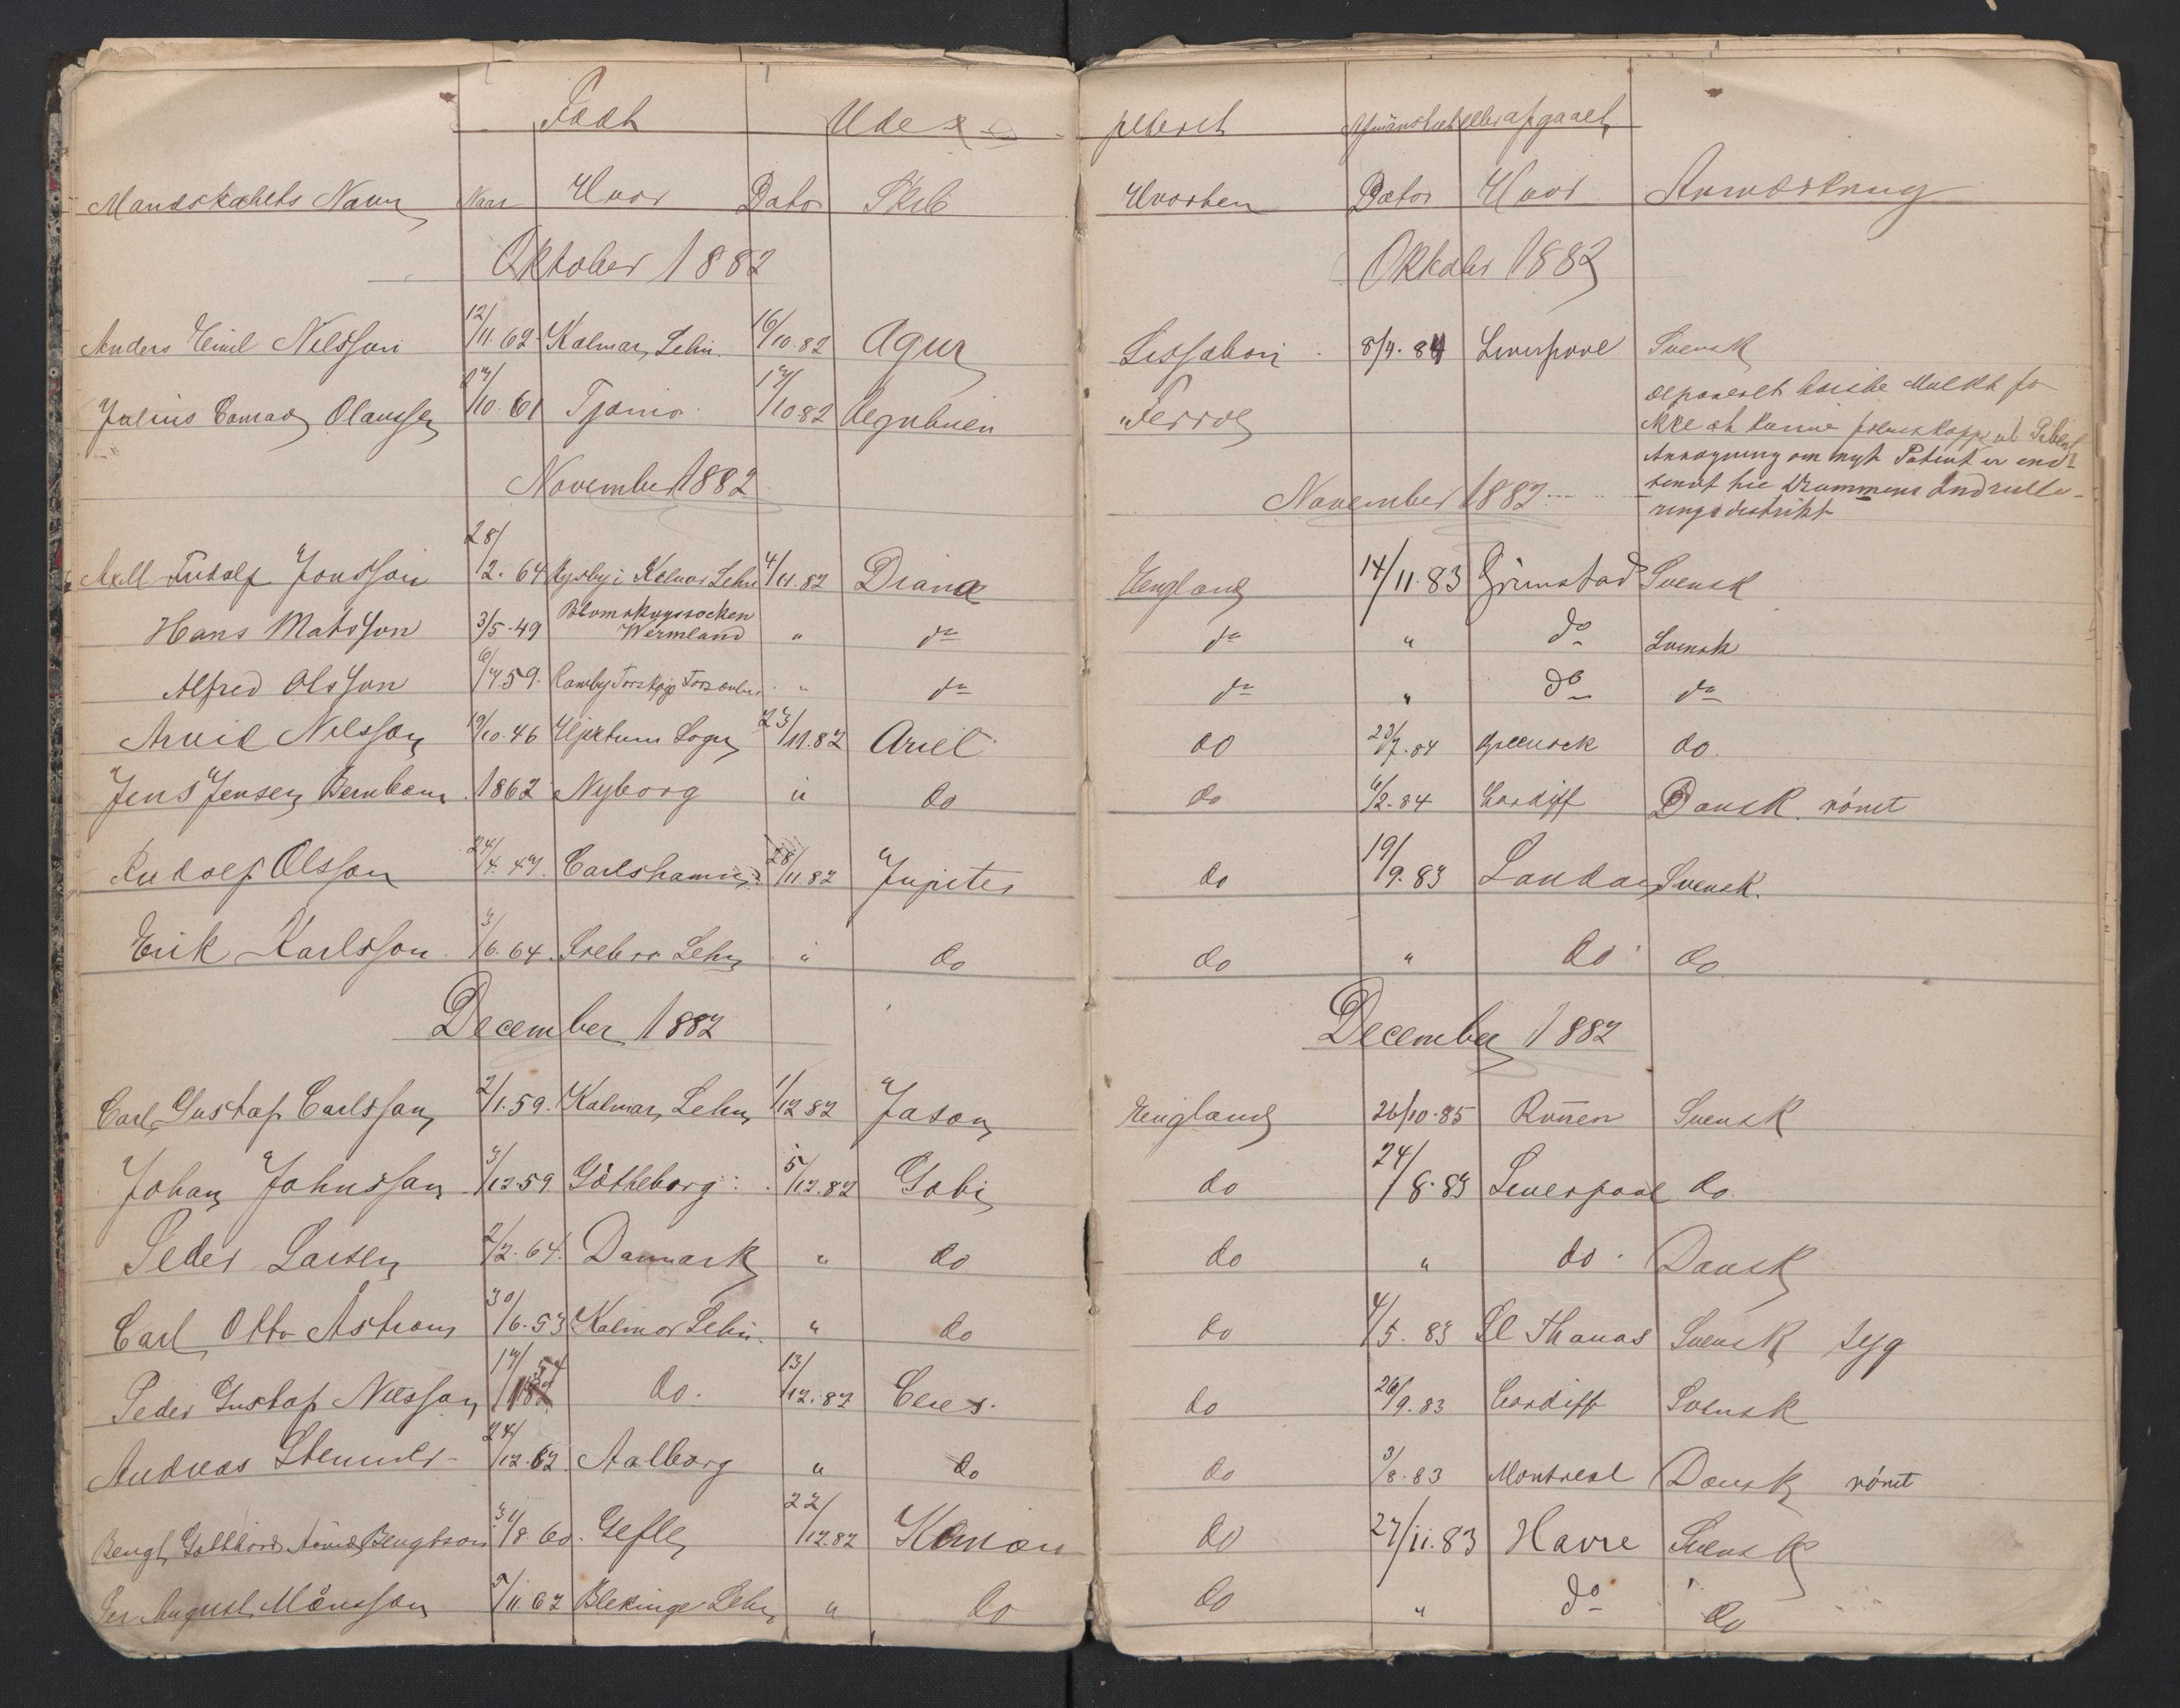 Født Udex
Mandskabets Navn Naar Hvor Dato Skib
Oktober 1882
Anders Emil Nilsson 12/11.62 Kalmar Lehn 16/10.82 Agur
Julius Conrad Olaussen 27/10.61 Tjømø 17/10.82
November 1882
Axell Rudolf Jonsson 28/2.64 i Kalmar Lehn 4/11.82 Diana
Hans Matsson 3/5.49 Blomskogssocken Wermland " do
Alfred Olsson 6/7.59. Torskog " do
Arvid Nilsson 19/10.46 Hjertum Sogn 23/11.82 Ariel
Jens Jensen Bernbom 1862 Nyborg " do
Rudolf Olsson 24/4.47. Carlshamn 28/11.82 Jupiter
Erik Karlsson 3/6.64. Örebro Lehn " do
December 1882
Carl Gustaf Carlsson 2/1.59. Kalmar Lehn 1/12 82 Jason
Johan Johnsson 3/12 59. Götheborg 5/12.82 Gobi
Peder Larsen 2/2.64. Danmark " do
Carl Otto Åstrom 30/6.53 Kalmar Lehn " do
Peder Gustaf Nilsson 17/1 54 do. 13/12.82 Ceres
Andreas 24/12.62. Aalborg " do
Bengt Gotthard Arvid Bengtson 31/8.60. Gefle 22/12.82
Per August Månsson 5/11.62 Blekinge Lehn " do
pederet Afmönstret eller afgaaet
Hvorhen Dato Hvor Anmærkning
Oktober 1882
Lissabon 8/4.84 Liverpool Svensk
Ferrol deponeret Mulkt for
ikke at kunne fremskaffe sit Patent
Ansøgning om nyt Patent er ind
sendt til Drammens Indrulle-
ringsdistrikt
November 1882
England 14/11.83 Grimstad Svensk
do " do Svensk
do " do do
do 23/7.84 Greenock do.
do 6/2.84 Cardiff Dansk. rømt
do 19/9.83 London Svensk.
do " do do
December 1882
England 26/10.85 Rouen Svensk
do 24/8.83 Liverpool do.
do " do. Dansk
do 4/5.83 St Thomas Svensk syg
do 26/9.83 Cardiff Svensk
do 3/8.83 Montreal Dansk rømt
do 27/11.83 Havre Svensk
do " do do